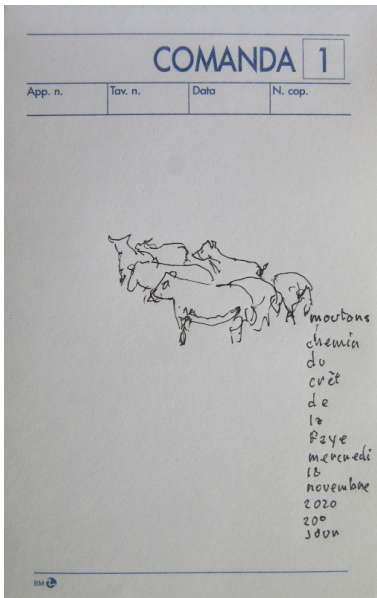 COMANDA 1
App. n. Tav. n. Data N. cop.
moutons
chemin
du
crêt
de
la
Faye
mercredi
18
novembre
2020
20°
jour
BM